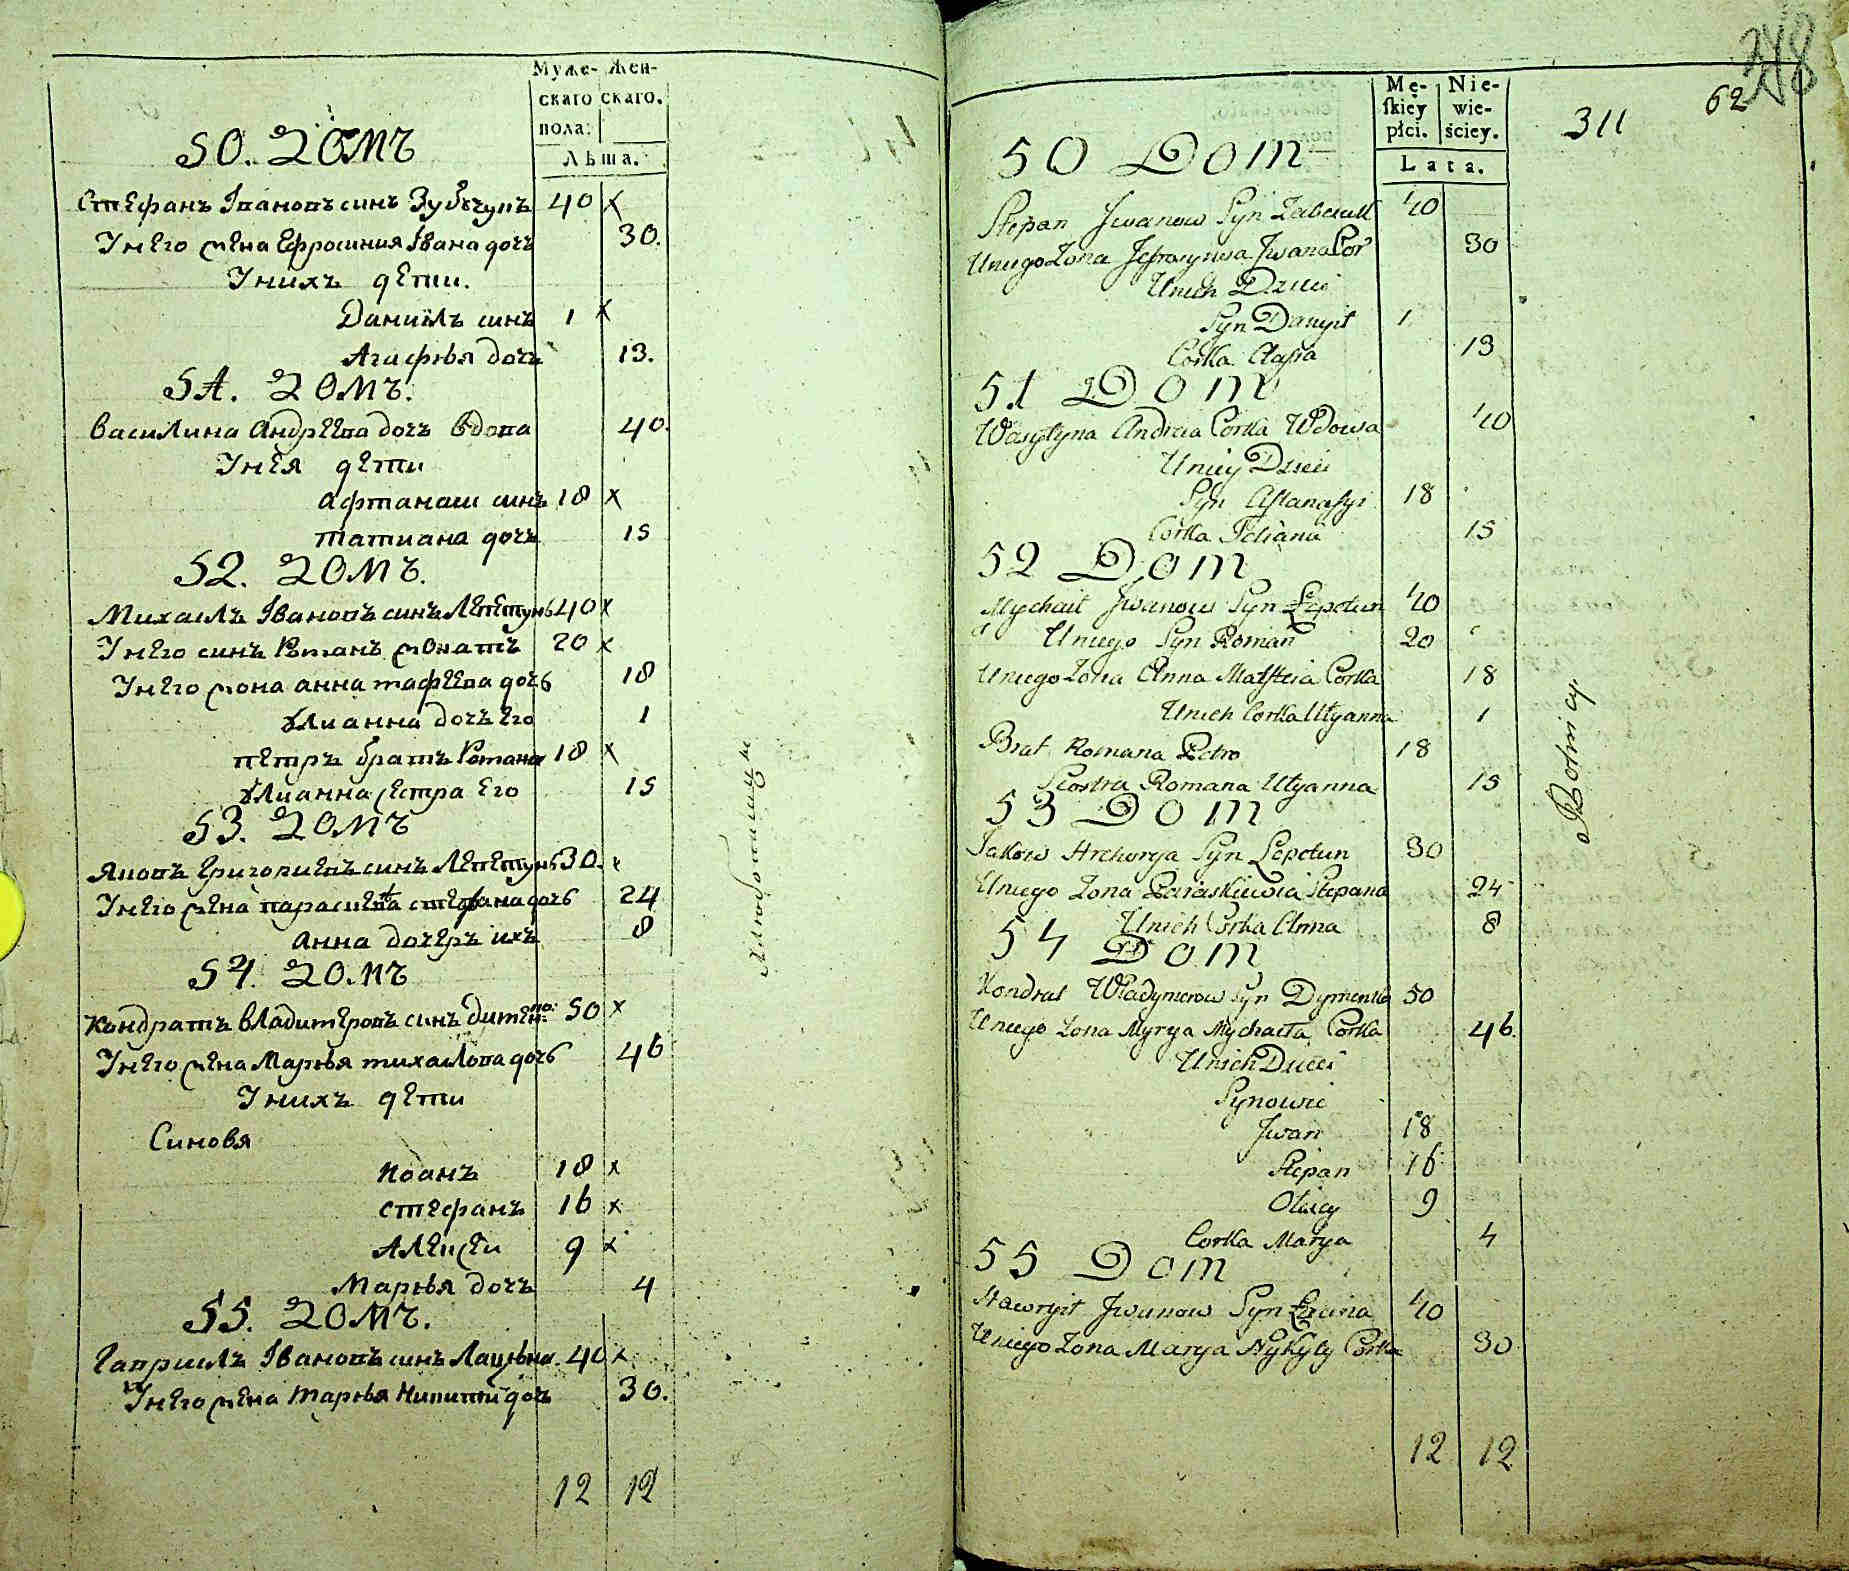 Муже- Жен-
скаго скаго.
пола:
Лѣта.
50. Домъ
Стефанъ Івановъ синъ Зубчукъ 40 x
У него жена Ефросиния Івана дочъ 30.
У нихъ дети.
Даниилъ синъ 1 x
Агафья дочъ 13.
51. Домъ.
Василина Андреева дочъ вдова 40.
У нея дети
Афтанаси синъ 18 x
Татиана дочъ 15
52. Домъ.
Михаилъ Івановъ синъ Лепетунъ 40 x
У него синъ Романъ жонатъ 20 x
У него жона Анна Мафеева дочъ 18
Улианна дочъ его 1
Петръ братъ Романа 18 x
Улианна сестра его 15
53. Домъ
Яковъ Григориевъ синъ Лепетунъ 30. x
У него жена Параскева Стефана дочъ 24
Анна дочеръ ихъ 8
54. Домъ
Кондратъ Владимеровъ синъ Дименко: 50 x
У него жена Маръя Михаилова дочъ 46
У нихъ дети
Синовя
Иоанъ 18 x
Стефанъ 16 x
Алексеи 9 x
Маръя дочъ 4
55. Домъ.
Гавриилъ Івановъ синъ 40 x
У него жена Маръя Никити дочъ 30.
12 12
Mę- Nie-
skiey wie-
płci. ściey.
Lata.
311
62
50 Dom
Stepan Jwanow Syn 40
Uniego Zona Jefrosynia Jwana Cor 30
Unich Dzieci
Syn Danyił 1
Corka Agafia 13
51 Dom
Wasylyna Andreia Corka Wdowa 40
Uniey Dzieci
Syn Aftanasyi 18
Corka Tetianna 15
52 Dom
Mychaił Jwanow Syn Lepetun 40
Uniego Syn Roman 20
Uniego Zona Anna Matfteia Corka 18
Unich Corka Ulyanna 1
Brat Romana Petro 18
Siostra Romana Ulyanna 15
53 Dom
Jakow Hrehorya Syn Lepetun 30
Uniego Zona Paraskiewia Stepana 24
Unich Corka Anna 8
54 Dom
Kondrat Władymerow Syn Dymenko 50
Uniego Zona Myrya Mychaiła Corka 46.
Unich Dzieci
Synowie
Jwan 18
Stepan 16
Olexey 9
Corka Marya 4
55 Dom
Hawryił Jwanow Syn 40
Uniego Zona Marya Nykyty Corka 30
12 12
Rolnicy.